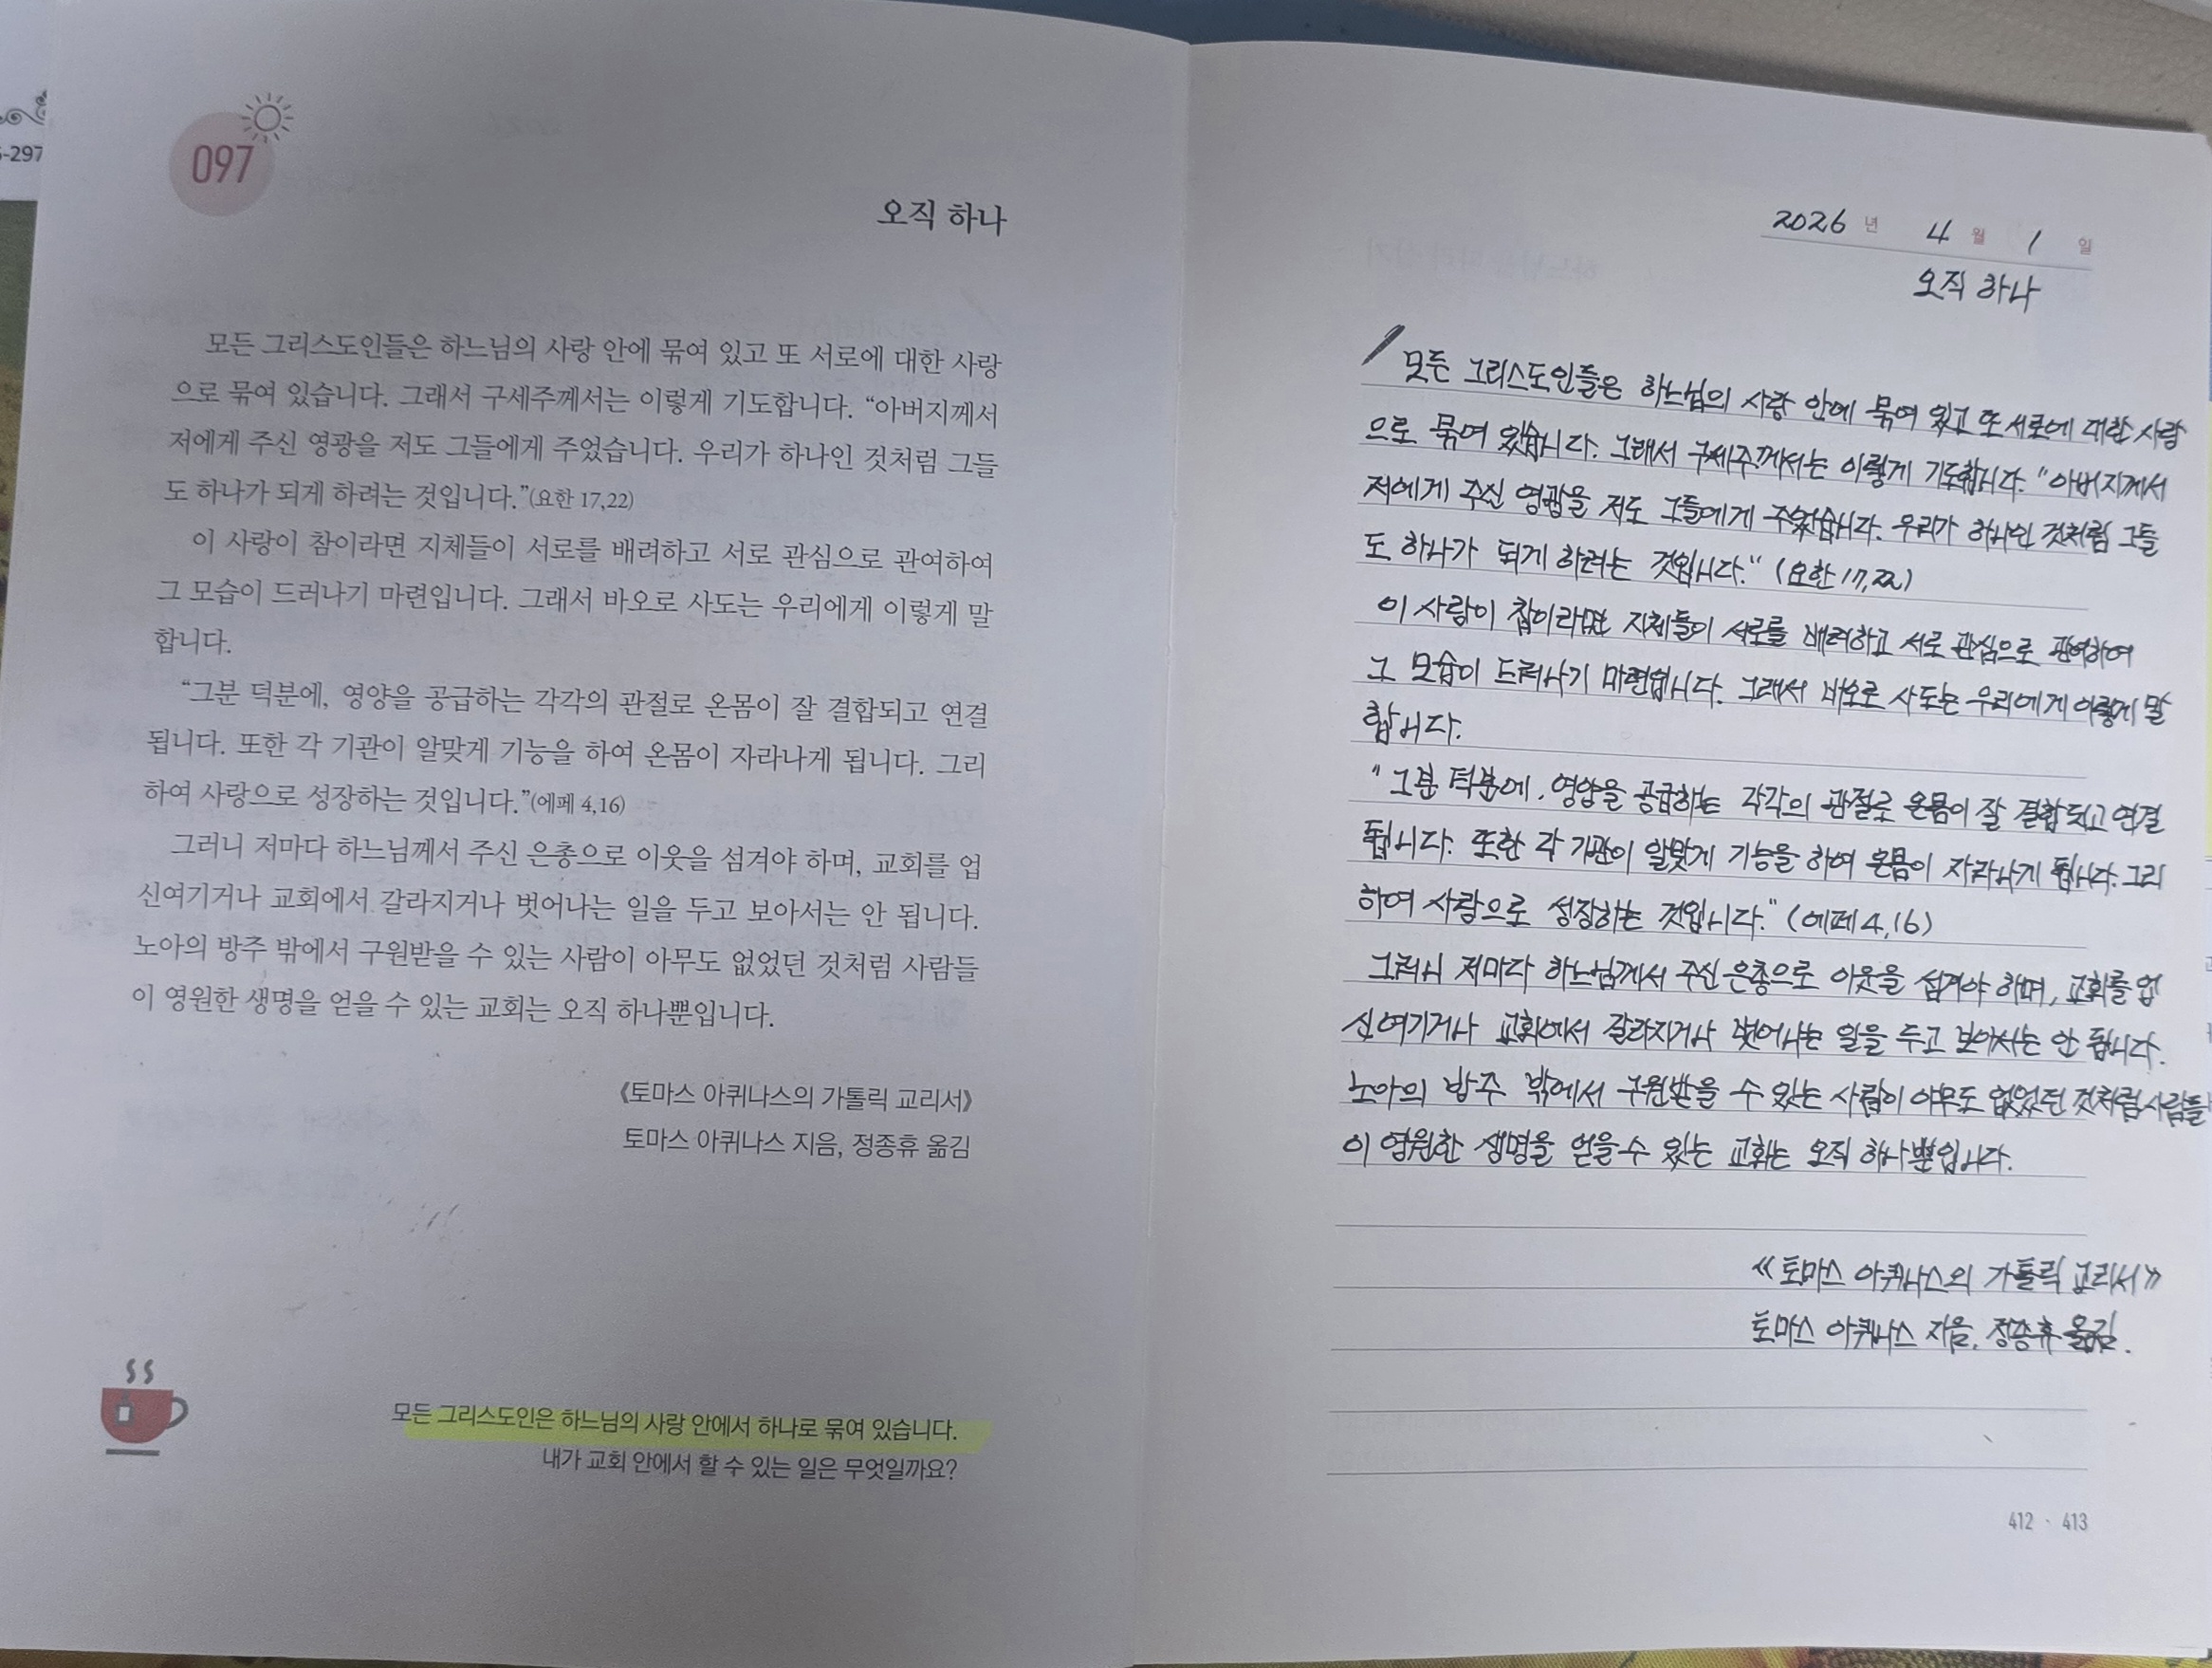 -297
097
오직 하나
모든 그리스도인들은 하느님의 사랑 안에 묶여 있고 또 서로에 대한 사랑
으로 묶여 있습니다. 그래서 구세주께서는 이렇게 기도합니다. “아버지께서
저에게 주신 영광을 저도 그들에게 주었습니다. 우리가 하나인 것처럼 그들
도 하나가 되게 하려는 것입니다.”(요한 17,22)
이 사랑이 참이라면 지체들이 서로를 배려하고 서로 관심으로 관여하여
그 모습이 드러나기 마련입니다. 그래서 바오로 사도는 우리에게 이렇게 말
합니다.
“그분 덕분에, 영양을 공급하는 각각의 관절로 온몸이 잘 결합되고 연결
됩니다. 또한 각 기관이 알맞게 기능을 하여 온몸이 자라나게 됩니다. 그리
하여 사랑으로 성장하는 것입니다.”(에페 4,16)
그러니 저마다 하느님께서 주신 은총으로 이웃을 섬겨야 하며, 교회를 업
신여기거나 교회에서 갈라지거나 벗어나는 일을 두고 보아서는 안 됩니다.
노아의 방주 밖에서 구원받을 수 있는 사람이 아무도 없었던 것처럼 사람들
이 영원한 생명을 얻을 수 있는 교회는 오직 하나뿐입니다.
《토마스 아퀴나스의 가톨릭 교리서》
토마스 아퀴나스 지음, 정종휴 옮김
모든 그리스도인은 하느님의 사랑 안에서 하나로 묶여 있습니다.
내가 교회 안에서 할 수 있는 일은 무엇일까요?
2026 년 4 월 1 일
오직 하나
모든 그리스도인들은 하느님의 사랑 안에 묶여 있고 또 서로에 대한 사랑
으로 묶여 있습니다. 그래서 구세주께서는 이렇게 기도합니다. "아버지께서
저에게 주신 영광을 저도 그들에게 주었습니다. 우리가 하나인 것처럼 그들
도 하나가 되게 하려는 것입니다." (요한 17,22)
이 사랑이 참이라면 지체들이 서로를 배려하고 서로 관심으로 관여하여
그 모습이 드러나기 마련입니다. 그래서 바오로 사도는 우리에게 이렇게 말
합니다.
"그분 덕분에, 영양을 공급하는 각각의 관절로 온몸이 잘 결합되고 연결
됩니다. 또한 각 기관이 알맞게 기능을 하여 온몸이 자라나게 됩니다. 그리
하여 사랑으로 성장하는 것입니다." (에페 4,16)
그러니 저마다 하느님께서 주신 은총으로 이웃을 섬겨야 하며, 교회를 업
신여기거나 교회에서 갈라지거나 벗어나는 일을 두고 보아서는 안 됩니다.
노아의 방주 밖에서 구원받을 수 있는 사람이 아무도 없었던 것처럼 사람들
이 영원한 생명을 얻을 수 있는 교회는 오직 하나뿐입니다.
《토마스 아퀴나스의 가톨릭 교리서》
토마스 아퀴나스 지음, 정종휴 옮김.
412 · 413